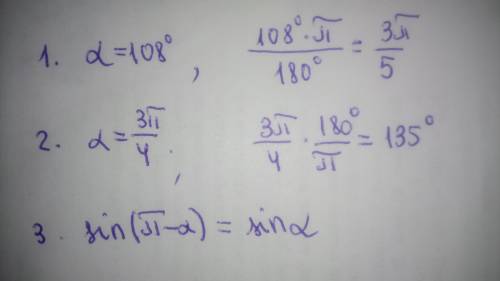 1. α=108°, 108°·π/180° = 3π/5
2. α=3π/4, 3π/4 · 180°/π = 135°
3. sin(π-α) = sinα